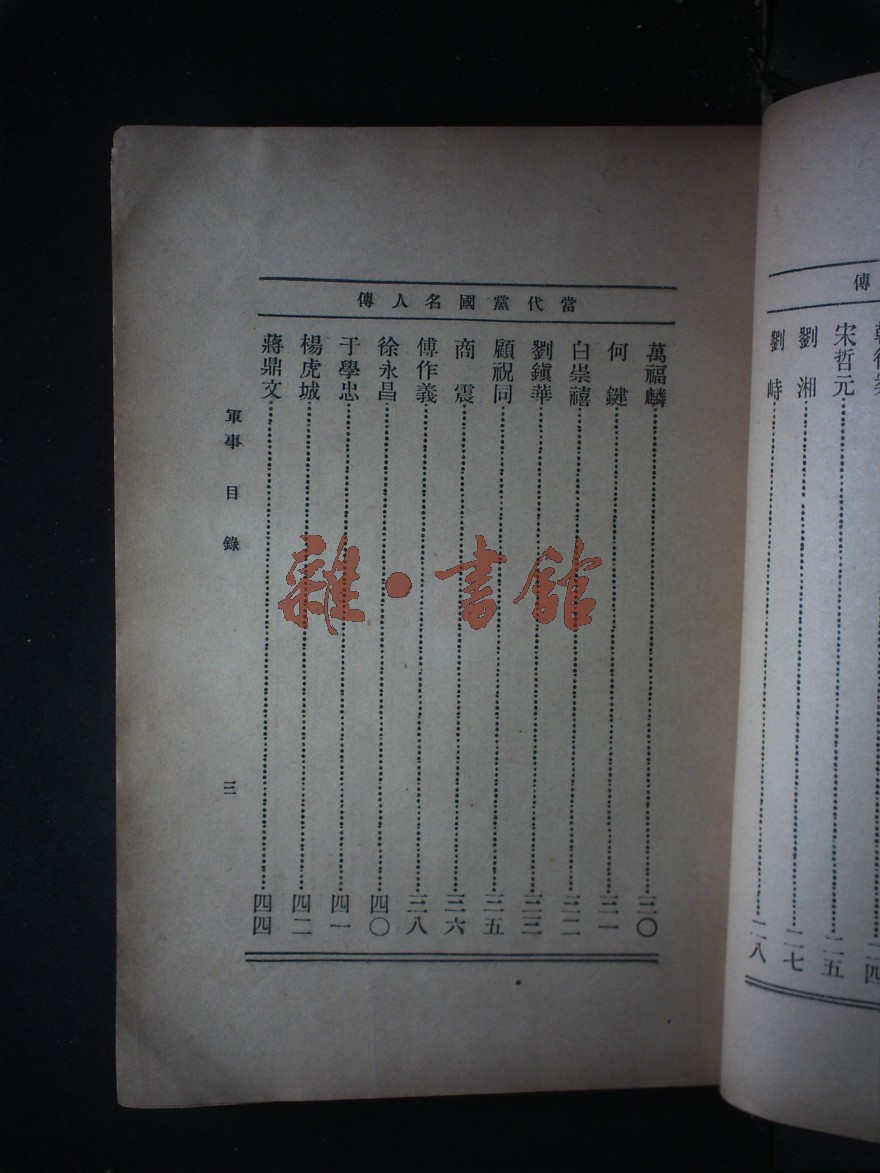 傳
二四
宋哲元……二五
劉湘……二七
劉峙……二八
當代黨國名人傳
萬福麟……三〇
何鍵……三一
白崇禧……三二
劉鎭華……三三
顧祝同……三五
商震……三六
傅作義……三八
徐永昌……四〇
于學忠……四一
楊虎城……四二
蔣鼎文……四四
軍事 目錄 三
雜·書館